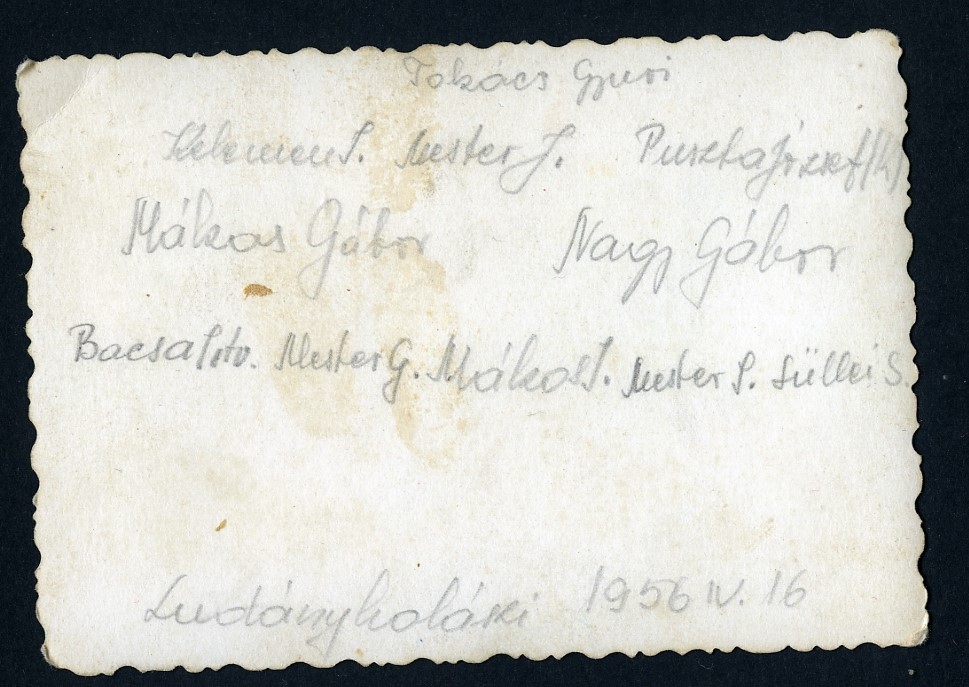 Takács Gyuri
Kelemen I. Mester J. Puszta József
Mákos Gábor Nagy Gábor
Bacsa Istv. Mester G. Mákos I. Mester I. Süllei S.
Ludányhalászi 1956 IV. 16